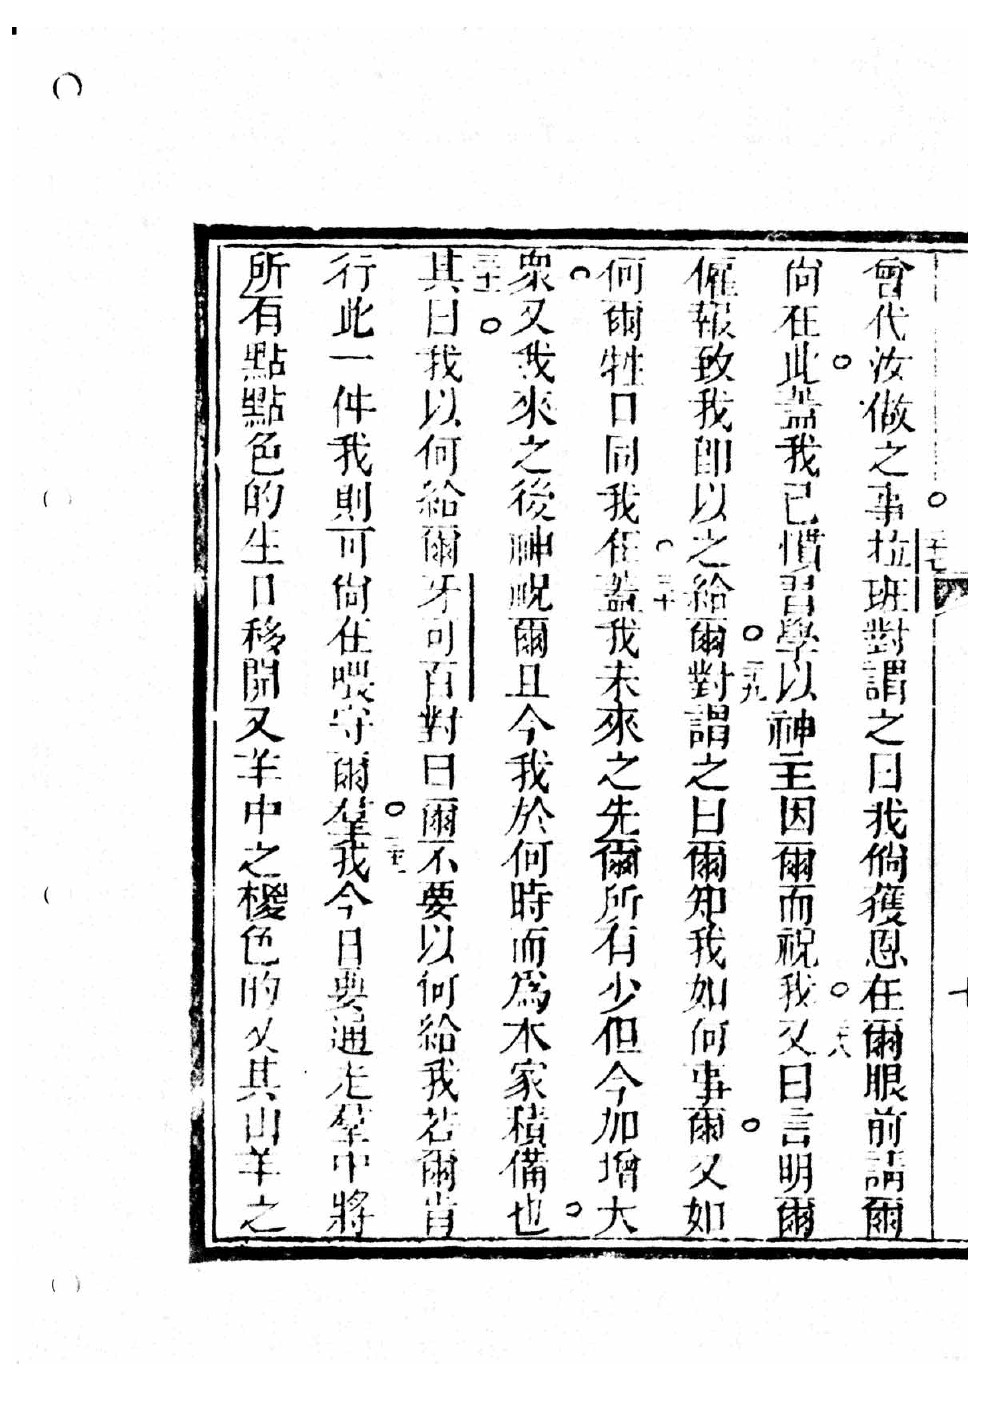 曾代汝做之事。二十七拉班對謂之曰我倘獲恩在爾眼前請爾
尚在此。蓋我已慣習學以神主因爾而祝我。二十八又曰言明爾
僱報致我卽以之給爾。二十九對謂之曰爾知我如何事爾。又如
何爾牲口同我在。三十蓋我未來之先爾所有少但今加增大
衆。又我來之後神祝爾且今我於何時而爲本家積備也。
三十一其曰。我以何給爾牙可百對曰爾不要以何給我若爾肯
行此一件我則可尙在喂守爾羣。三十二我今日要通走羣中將
所有點點色的生口移開又羊中之椶色的又其山羊之
十